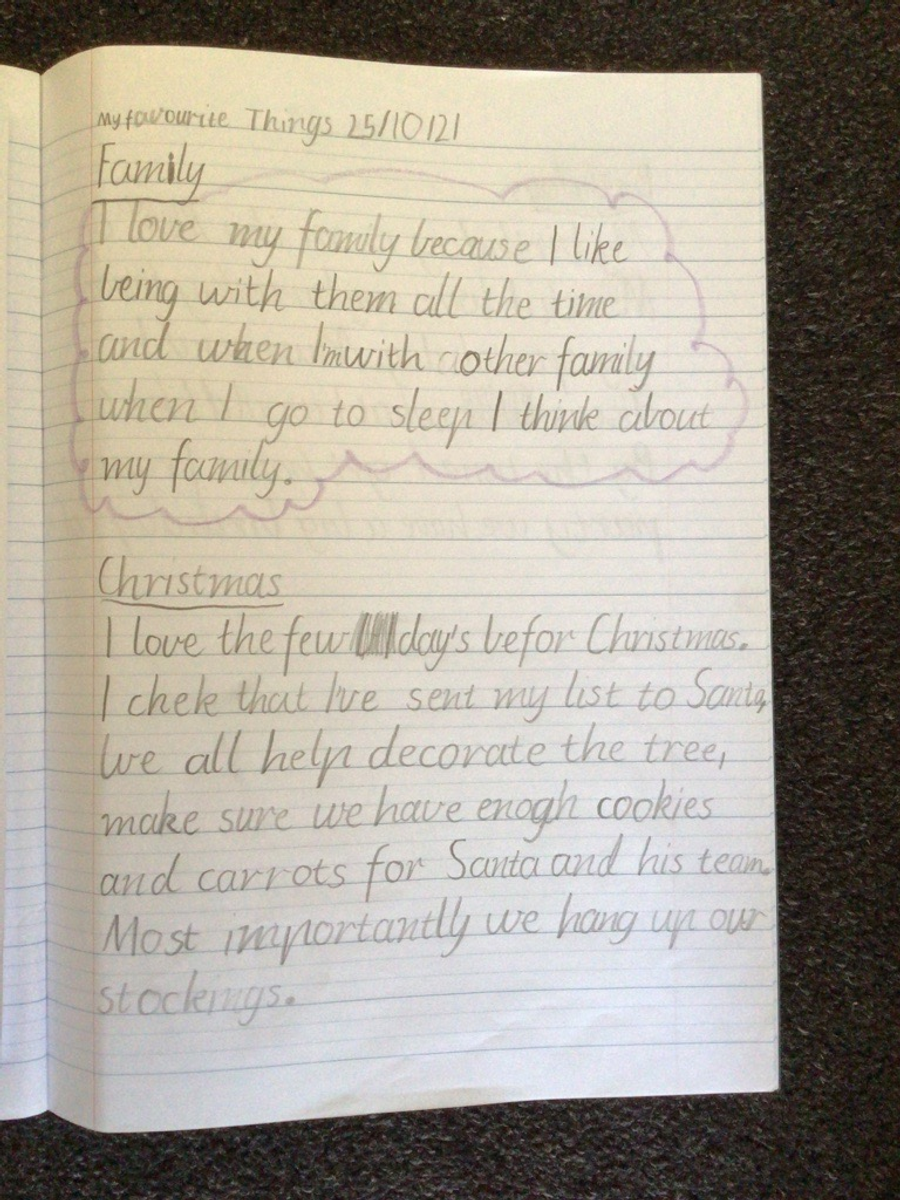 My favourite Things 25/10/21
Family
I love my family because I like
being with them all the time
and when I'm with other family
when I go to sleep I think about
my family.
Christmas
I love the few day's befor Christmas.
I chek that I've sent my list to Santa,
We all help decorate the tree,
make sure we have enogh cookies
and carrots for Santa and his team.
Most importantly we hang up our
stockings.